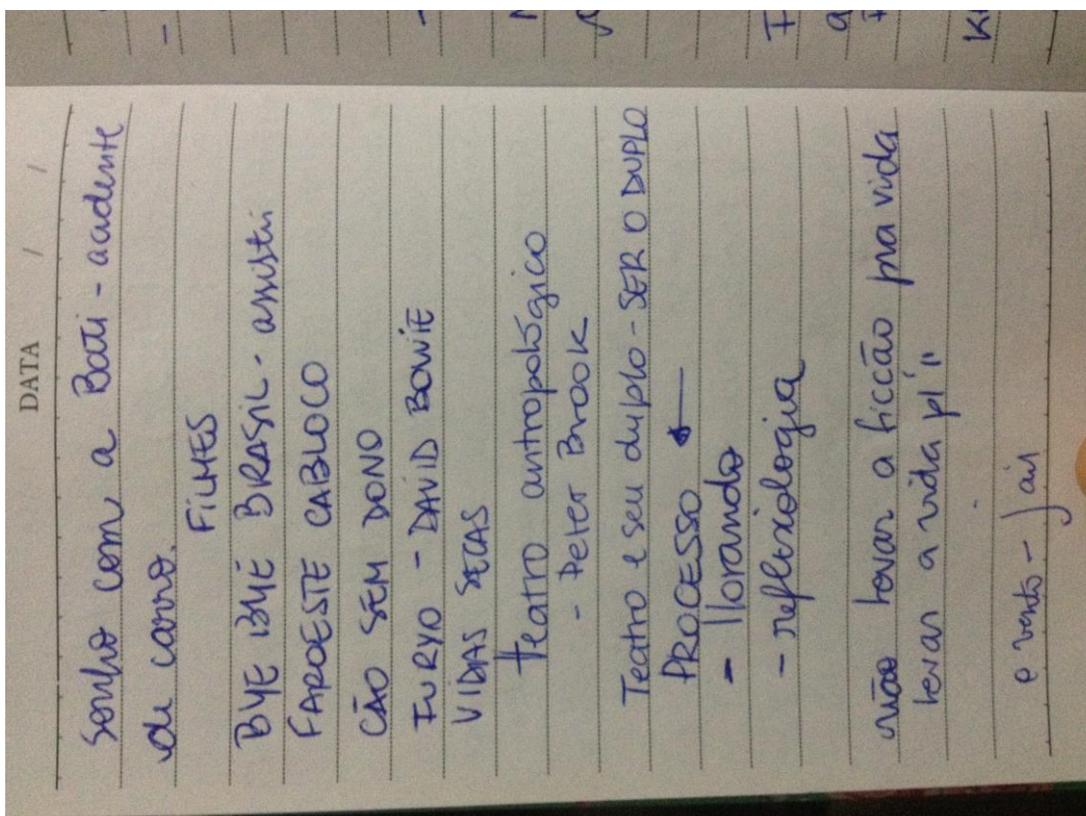 DATA / / /
Sonho com a Bati - acidente
de carro.
FILMES
BYE BYE BRASIL - assisti
FAROESTE CABLOCO
CÃO SEM DONO
FURYO - DAVID BOWIE
VIDAS SECAS
Teatro antropológico
- Peter Brook
Teatro e seu duplo - SER O DUPLO
PROCESSO ←
- lorando
- reflexologia
não levar a ficcão pra vida
levar a vida p/ "
e vento - jair